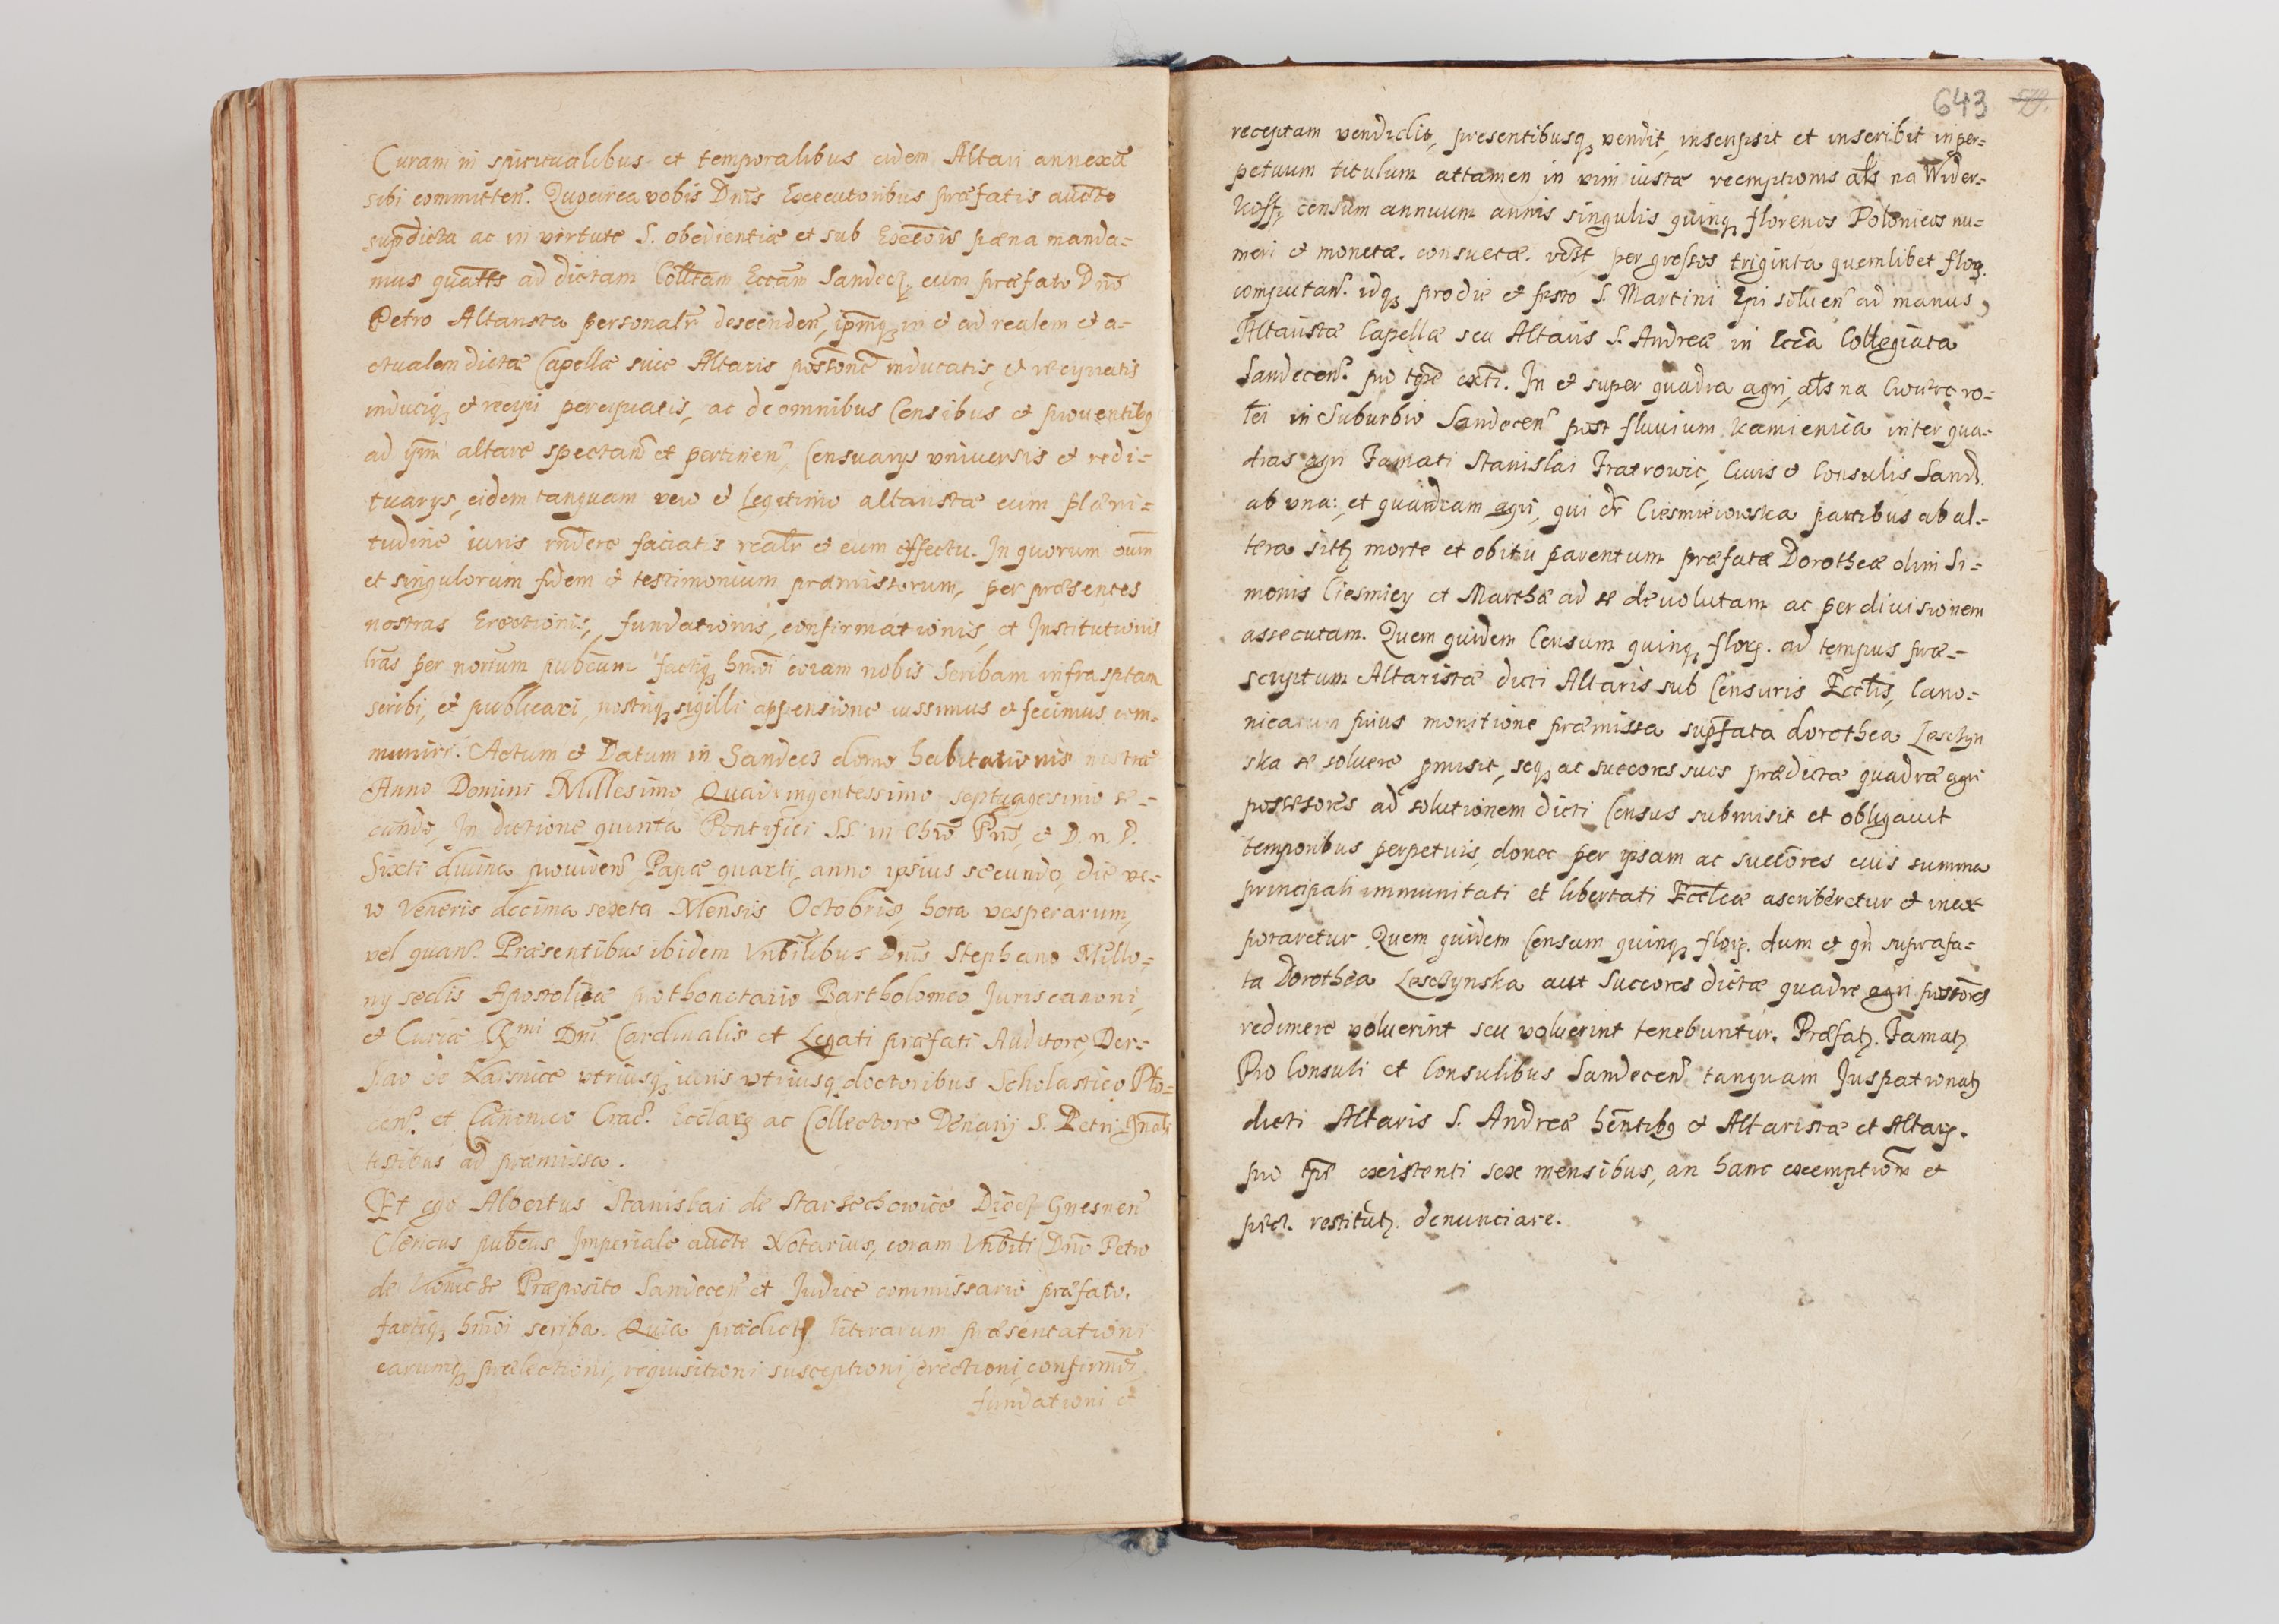 Curam in spiritualibus et temporalibus eidem Altari annexā
sibi committen̄. Quocirca vobis Dnīs Executoribus præfatis auctō
supdicta ac in virtute S. obedientiæ et sub Excōīs pæna manda-
mus quatts ad dictam Colltam Eccām Sandecz, cum præfato Dnō
Petro Altarista personalr̄ descenden̄, ipmq in et ad realem et a-
ctualem dictæ Capellæ sive Altaris possōnē inducatis, et recipiatis
induciq et recipi percipiatis, ac de omnibus Censibus et proventibq
ad ipm̄ altare spectan̄ et pertinen̄, Censuarys vniversis et redi-
tuarys, eidem tanquam vero et legitimo altaristæ cum plæni-
tudine iuris rn̄dere faciatis realr̄ et cum effectu. In quorum oūm
et singulorum fidem et testimonium præmissorum, per præsentes
nostras Erectionis, fundationis, confirmationis, et Institutionis
lrās per norīum publcum factiq hmōi coram nobis Scribam infrasptam
scribi, et publicari, nostriq sigilli appensione iussimus et fecimus com-
muniri. Actum et Datum in Sandecz domo habitationis nostræ
Anno Domini Millesimo Quadringentessimo septuagesimo se-
cundo, In dictione quinta Pontifici SS. in Chrō Prīs, et D. n. D.
Sixti divina providen̄, Papæ quarti, anno ipsius secundo, die ve-
ro Veneris decima sexta Mensis Octobris, hora vesperarum,
vel quasi. Præsentibus ibidem Vnbilibus Dnīs Stephano Millo-
ny sedis Apostolicæ prothonotario Bartholomeo Juriscanoni,
et Curiæ Rmi Dnī Cardinalis et Legati præfati Auditore, Der-
slao de Karsnice vtriusq iuris vtriusq doctoribus Scholastico Plo-
cen̄. et Canonico Crac̄. Ecclarz ac Collectore Denarij S. Petri Gnāli
testibus ad præmissa.
Et ego Albertus Stanislai de Starzechowice Dioecz Gnesnen̄
Clericus publcus Imperiale aucte Notarius, coram Vnbili Dnō Petro
de Præposito Sandecen̄ et Judice commissario præfato,
factiq hmōi scriba. Quia prædictz literarum præsentationi
earumq prælectioni, requisitioni susceptioni, erectioni, confirmōi,
fundationi et
643 579.
receptam vendidit, presentibusq vendit, inscripsit et inscribit in per-
petuum titulum attamen in vim iustæ reemptionis als na Wider-
koff, censum annuum annis singulis quinq florenos Polonicos nu-
meri et monetæ. consuetæ. vdlt, per grossos triginta quemlibet florz.
computan̄. idq pro die et festo S. Martini Epi solven̄ ad manus,
Altaristæ Capellæ seu Altaris S. Andreæ in Eccā Collegiata
Sandecen̄. pro tpre exti. In et super quadra agri, als na Cwierc ro-
lei in Suburbio Sandecen̄ post fluvium Kamienica inter qua-
dras agri Famati Stanislai Fratrowic, Civis et Consulis Sand.
ab vna: et quandam agri, qui dr̄ Ciesmiejowska partibus ab al-
tera sitz morte et obitu parentum præfatæ Dorotheæ olim Si-
monis Ciesmiey et Marthæ ad se devolutam ac per divisionem
assecutam. Quem quidem Censum quinq florz. ad tempus præ-
scriptum Altaristæ dicti Altaris sub Censuris Ecclīs, Cano-
nicarum prius monitione præmissa supfata dorothea Leschyn
ska se solvere pmisit, seq ac succores suos prædictæ quadræ agri
possessores ad solutionem dicti Census submisit et obligavit
temporibus perpetuis, donec per ipsam ac succōres eius summa
principali immunitati et libertati Eccleæ ascriberetur et incor
poraretur Quem quidem Censum quinq florz. dum et qn̄ suprafa-
ta Dorothea Leschynska aut Succores dictæ quadre agri possōres
redimere voluerint seu voluerint tenebuntur. Præfatz. Famatz
Pro Consuli et Consulibus Sandecen̄ tanquam Juspatronatz
dicti Altaris S. Andreæ hēntibq et Altaristæ et Altarz.
pro tpre existenti sex mensibus, an hanc exemptiōm et
restitutz. denunciare.